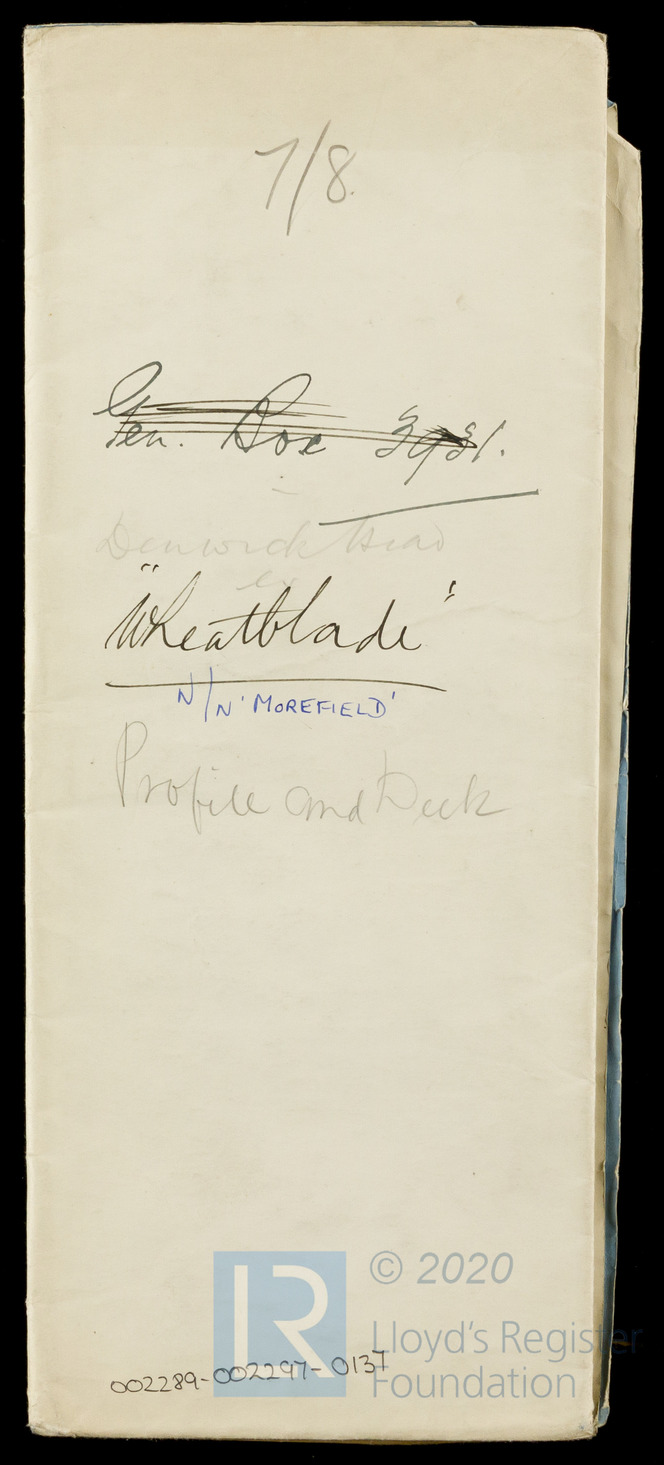 7/8.
Gen. Box 3931.
Denwick Head
ex
"Wheatblade"
N/N 'MOREFIELD'
Profile and Deck
© 2020
LR
Lloyd's Register
Foundation
002289-002297-0137